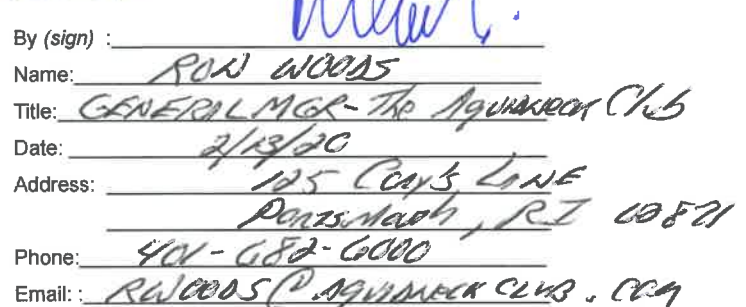 By (sign) :
Name: RON WOODS
Title: GENERAL MGR - The Aquidneck Club
Date: 2/13/20
Address: 125 Cory's LANE
Portsmouth, RI 02871
Phone: 401-682-6000
Email: : RWOODS@AQUIDNECKCLUB.COM